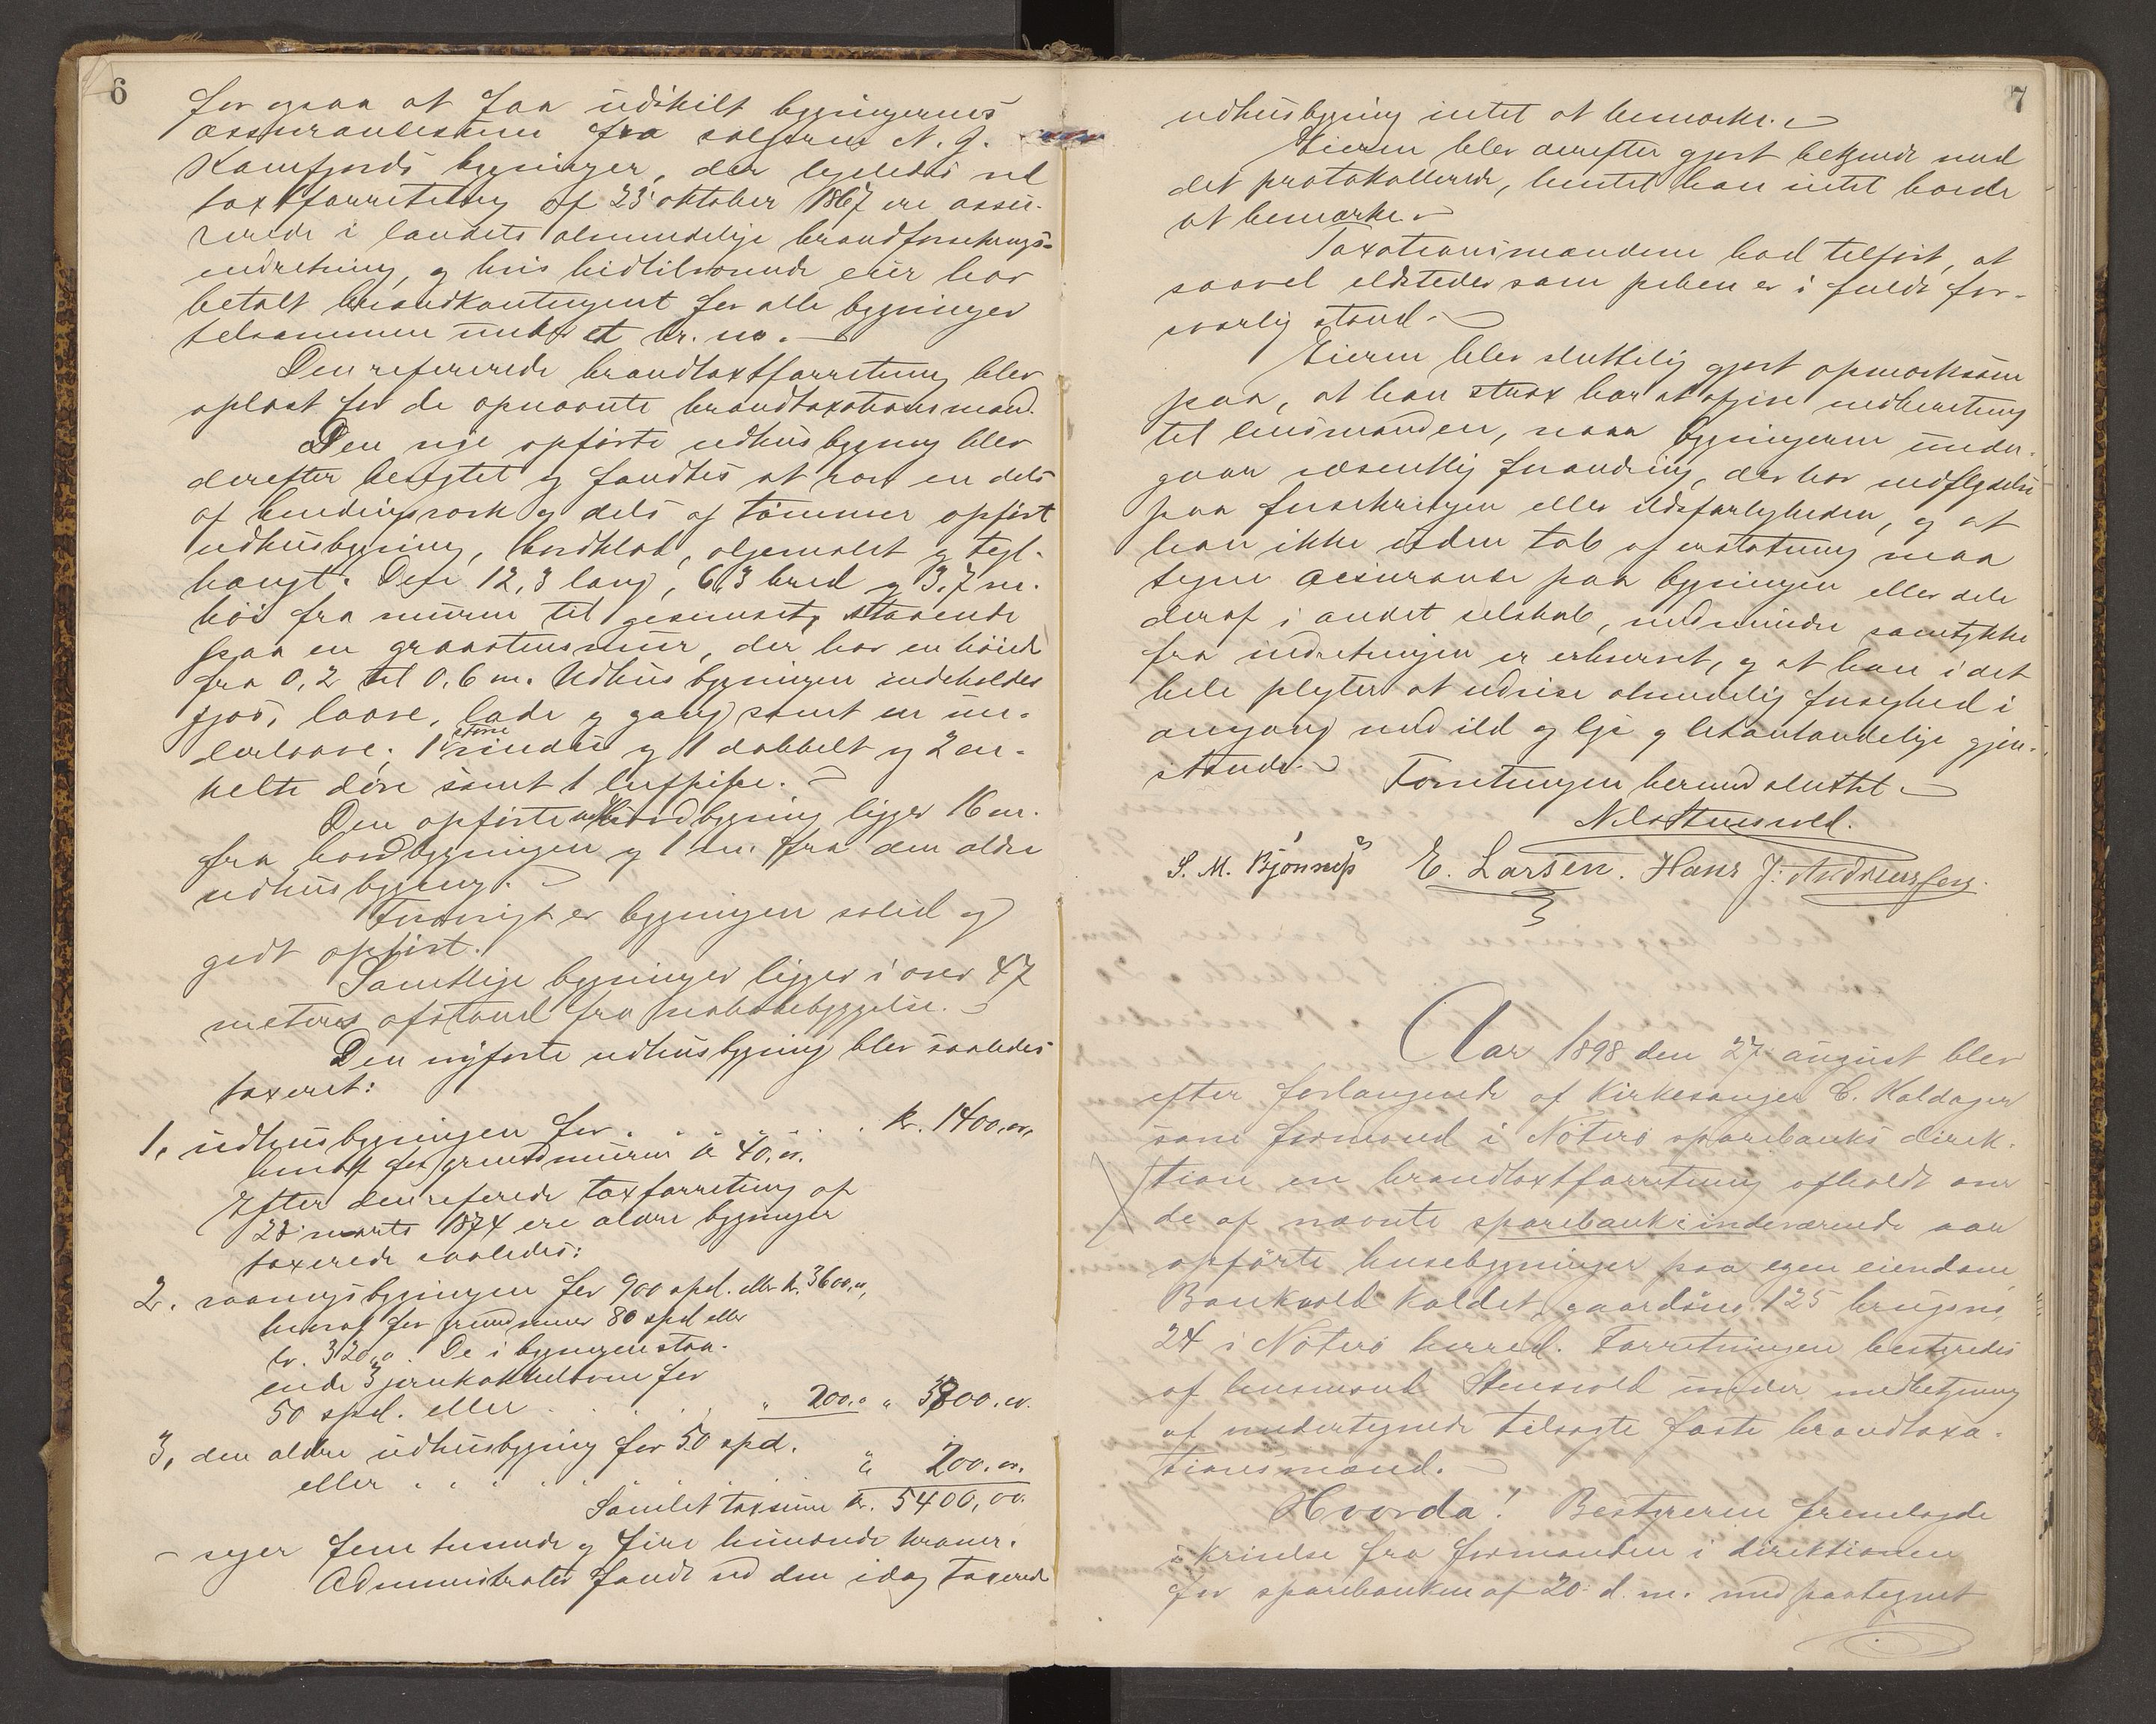 6
for ogsaa at faa udskilt bygningernes
assurancesum fra sælgeren N. J.
Kamfjords bygninger, der ligeledes ved
taxtforretning af 23 oktober 1867 ere assu-
rerede i landets almindelige brandforsikrings-
indretning, og hvis hidtilværende eier har
betalt brandkontingent for alle bygninger
tilsammen under et br. no. —
Den refererede brandtaxtforretning blev
oplæst for de opnævnte brandtaxationsmænd.
Den nye opførte udhusbygning blev
derefter besigtet og fandtes at være en dels
af bindingsværk og dels af tømmer opført
udhusbygning, bordklædt, oljemalet og tegl-
hængt. Den 12,3 lang, 6,3 bred og 3,7 m.
høi fra muren til gesimset, staaende
paa en graastensmur, der har en høide
fra 0,2 til 0,6 m. Udhusbygningen indeholder
fjøs, laave, lade og gang samt en un-
derlaave, 1 større vindu og 1 dobbelt og 2 en-
kelte døre samt 1 luftpipe. —
Den opførte udhusbygning ligger 16 m.
fra hovedbygningen og 1 m. fra den ældre
udhusbygning. —
Forøvrigt er bygningen solid og
godt opført.
Samtlige bygninger ligger i over 47
meters afstand fra nabobebyggelse. —
Den nyførte udhusbygning blev saaledes
taxeret:
1, udhusbygningen for . . . . . . . kr. 1400,00,
heraf for grundmuren kr 40,00.
Efter den refererede taxforretning af
28 marts 1874 ere ældre bygninger
taxerede saaledes:
2. vaaningsbygningen for 900 spd. eller kr. 3600,00,
heraf for grundmuren 80 spd eller
kr. 320,00. De i bygningen staa-
ende 3 jernkakkelovne for
50 spd. eller . . . . . " 200,00 " 3800.00.
3, den ældre udhusbygning for 50 spd.
eller . . . . . . . . " 200.00.
Samlet taxsum kr. 5400,00.
— siger fem tusinde og fire hundrede kroner.
Administrator fandt ved den idag taxerede
7
udhusbygning intet at bemærke. —
Eieren blev derefter gjort bekjendt med
det protokollerede, hvortil han intet havde
at bemærke. —
Taxationsmændene bad tilført, at
saavel ildsteder som piben er i fuldt for-
svarlig stand. —
Eieren blev sluttelig gjort opmærksom
paa, at han strax har at afgive indberetning
til lensmanden, naar bygningerne under-
gaar væsentlig forandring, der har indflydelse
paa forsikringen eller ildsfarligheden, og at
han ikke uden tab af erstatning maa
tegne assurance paa bygningen eller dele
deraf i andet selskab, medmindre samtykke
fra indretningen er erhvervet, og at han i det
hele pligter at udvise almindelig forsighed i
omgang med ild og lys og letantændelige gjen-
stande. — Forretningen hermed sluttet —
Nils Stensvold.
S. M. Bjønnes E. Larsen. Hans J. Andreassen.
Aar 1898 den 27 august blev
efter forlangende af Kirkesanger C. Kaldager
som formand i Nøterø sparebanks direk-
tion en brandtaxtforretning afholdt over
de af nævnte sparebank indeværende aar
opførte husebygninger paa egen eiendom
Bankvold kaldet, gaardsno. 125 brugsno.
24 i Nøterø herred. Forretningen bestyredes
af lensmand Stensvold under medbetjening
af undertegnede tilsagte faste brandtaxa-
tionsmænd. —
Hvorda! Bestyreren fremlagde
skrivelse fra formanden i direktionen
for sparebanken af 20 d. m. med paategnet